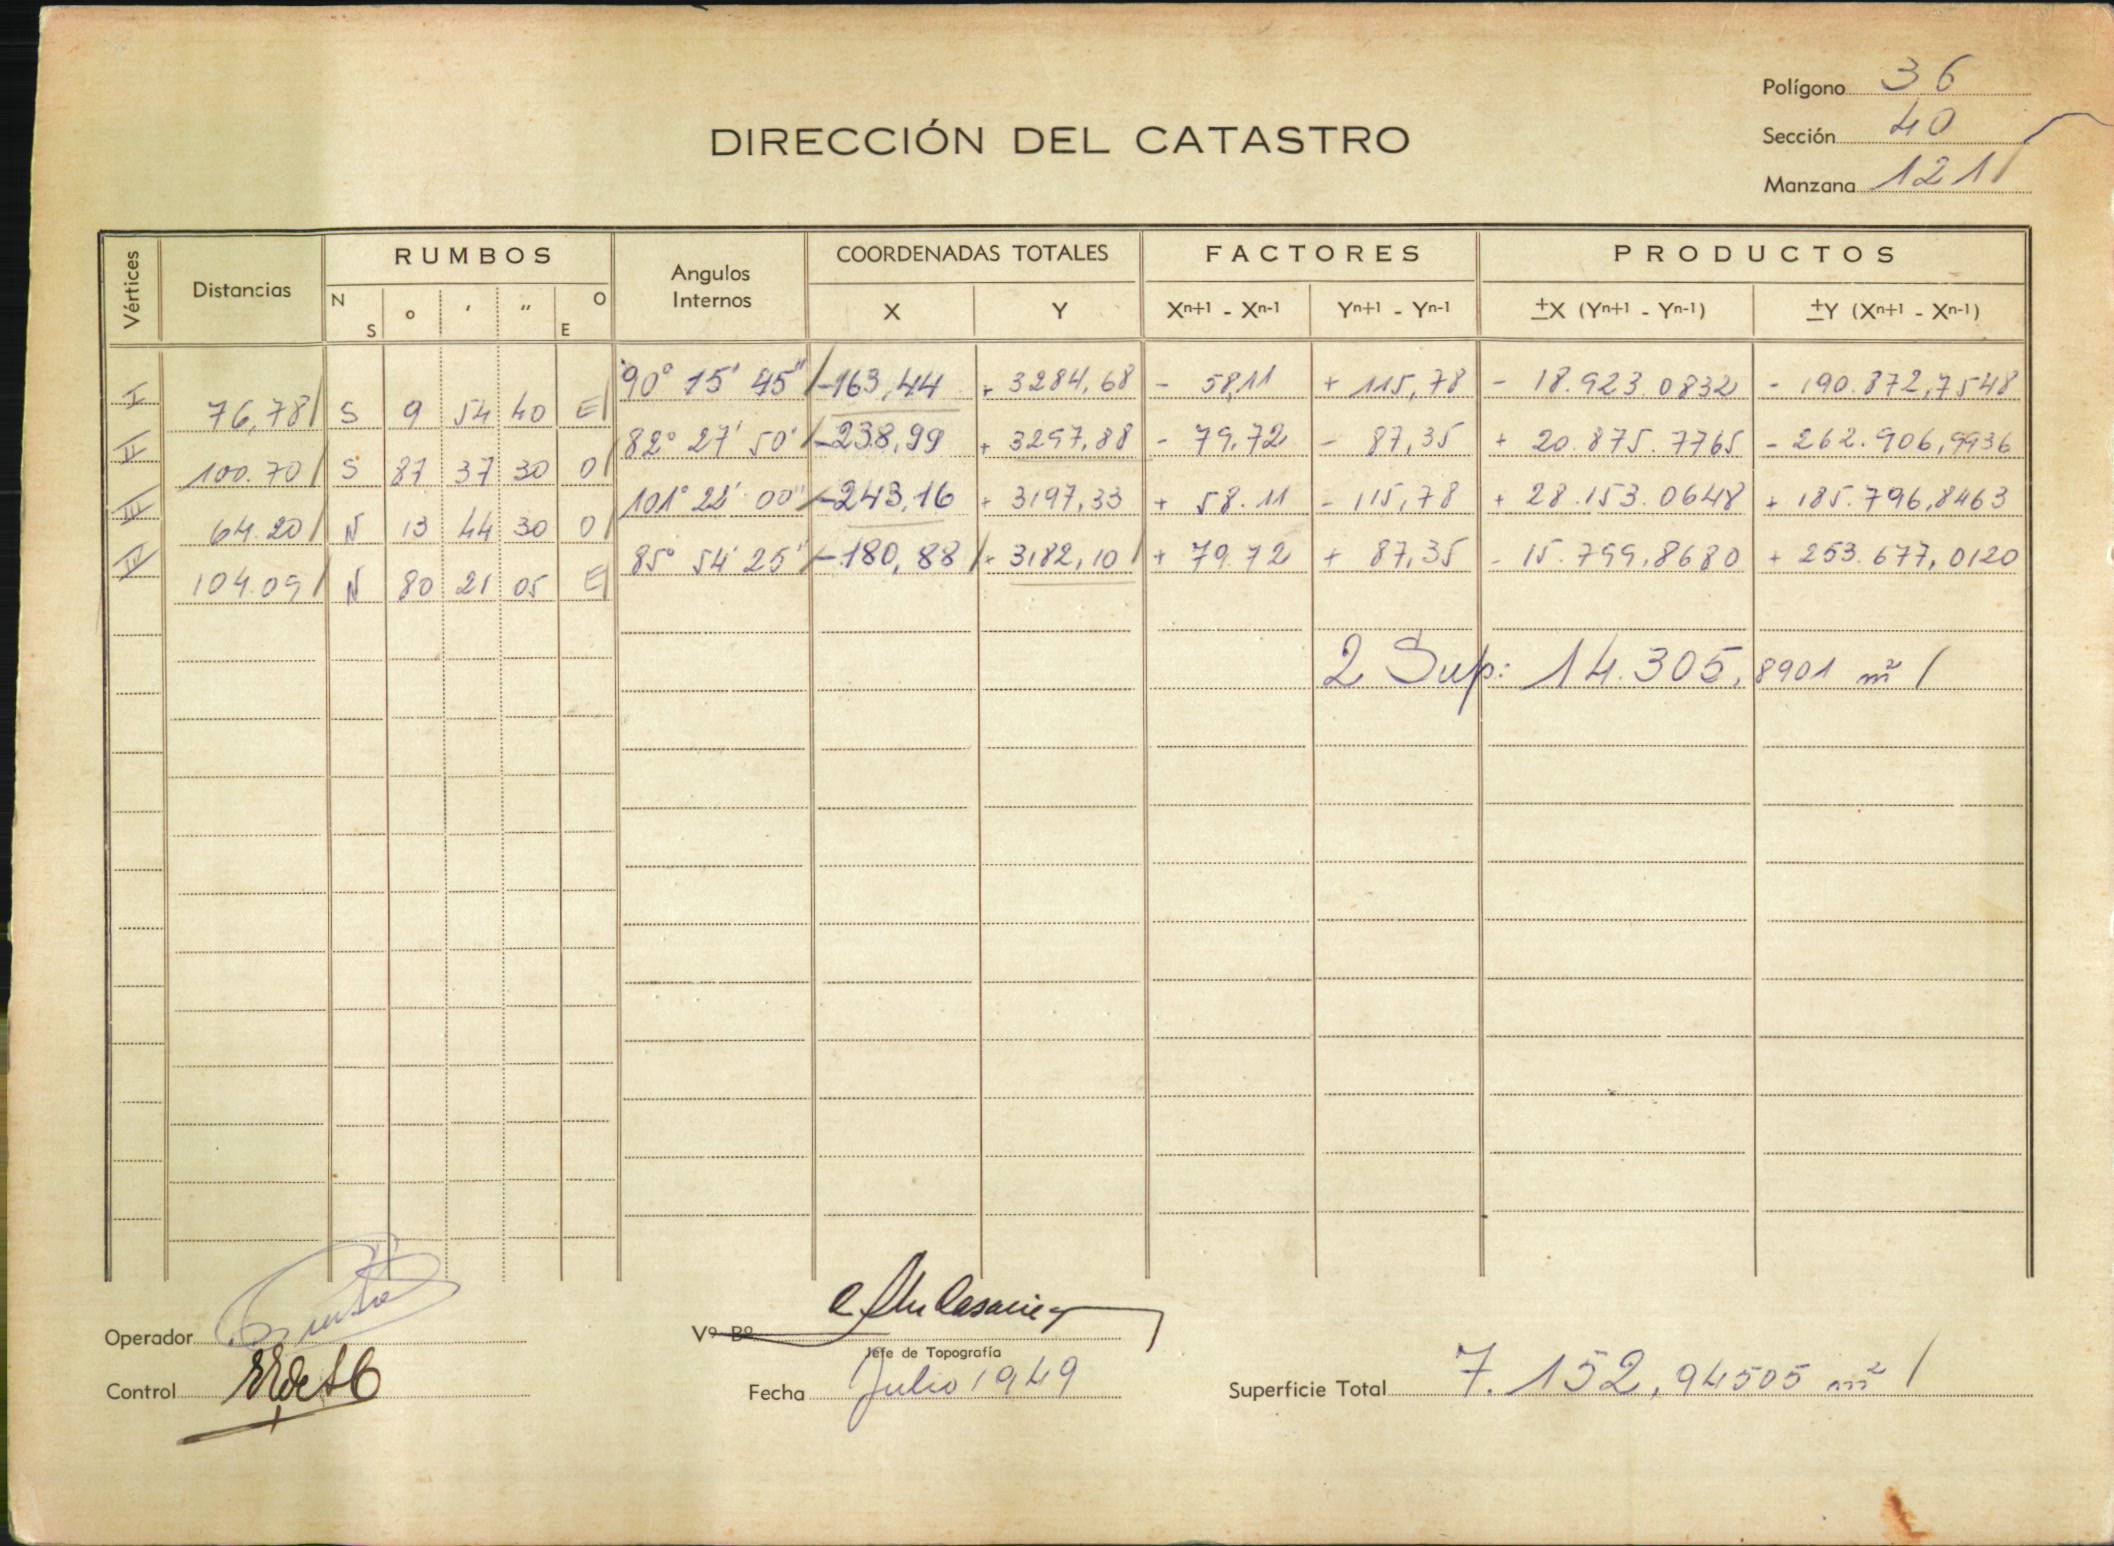 Polígono 36
DIRECCIÓN DEL CATASTRO
Sección 40
Manzana 121
Vértices Distancias RUMBOS Angulos Internos COORDENADAS TOTALES FACTORES PRODUCTOS
N S ° ′ ″ O E X Y Xn+1 - Xn-1 Yn+1 - Yn-1 ±X (Yn+1 - Yn-1) ±Y (Xn+1 - Xn-1)
I 90° 15' 45" -163,44 + 3284,68 - 58,11 + 115,78 - 18.923.0832 - 190.872,7548
76,78 S 9 54 40 E
II 82° 27' 50" -238,99 + 3297,88 - 79,72 - 87,35 + 20.875.7765 - 262.906,9936
100.70 S 87 37 30 O
III 101° 22' 00" -243,16 + 3197,33 + 58.11 - 115,78 + 28.153.0648 + 185.796,8463
64.20 N 13 44 30 O
IV 85° 54' 25" -180,88 + 3182,10 + 79.72 + 87,35 - 15.799,8680 + 253.677,0120
104.09 N 80 21 05 E
2 Sup: 14.305,8901 m²
Operador
Vº Bº
Jefe de Topografía
Control
Fecha Julio 1949
Superficie Total 7.152,94505 m²